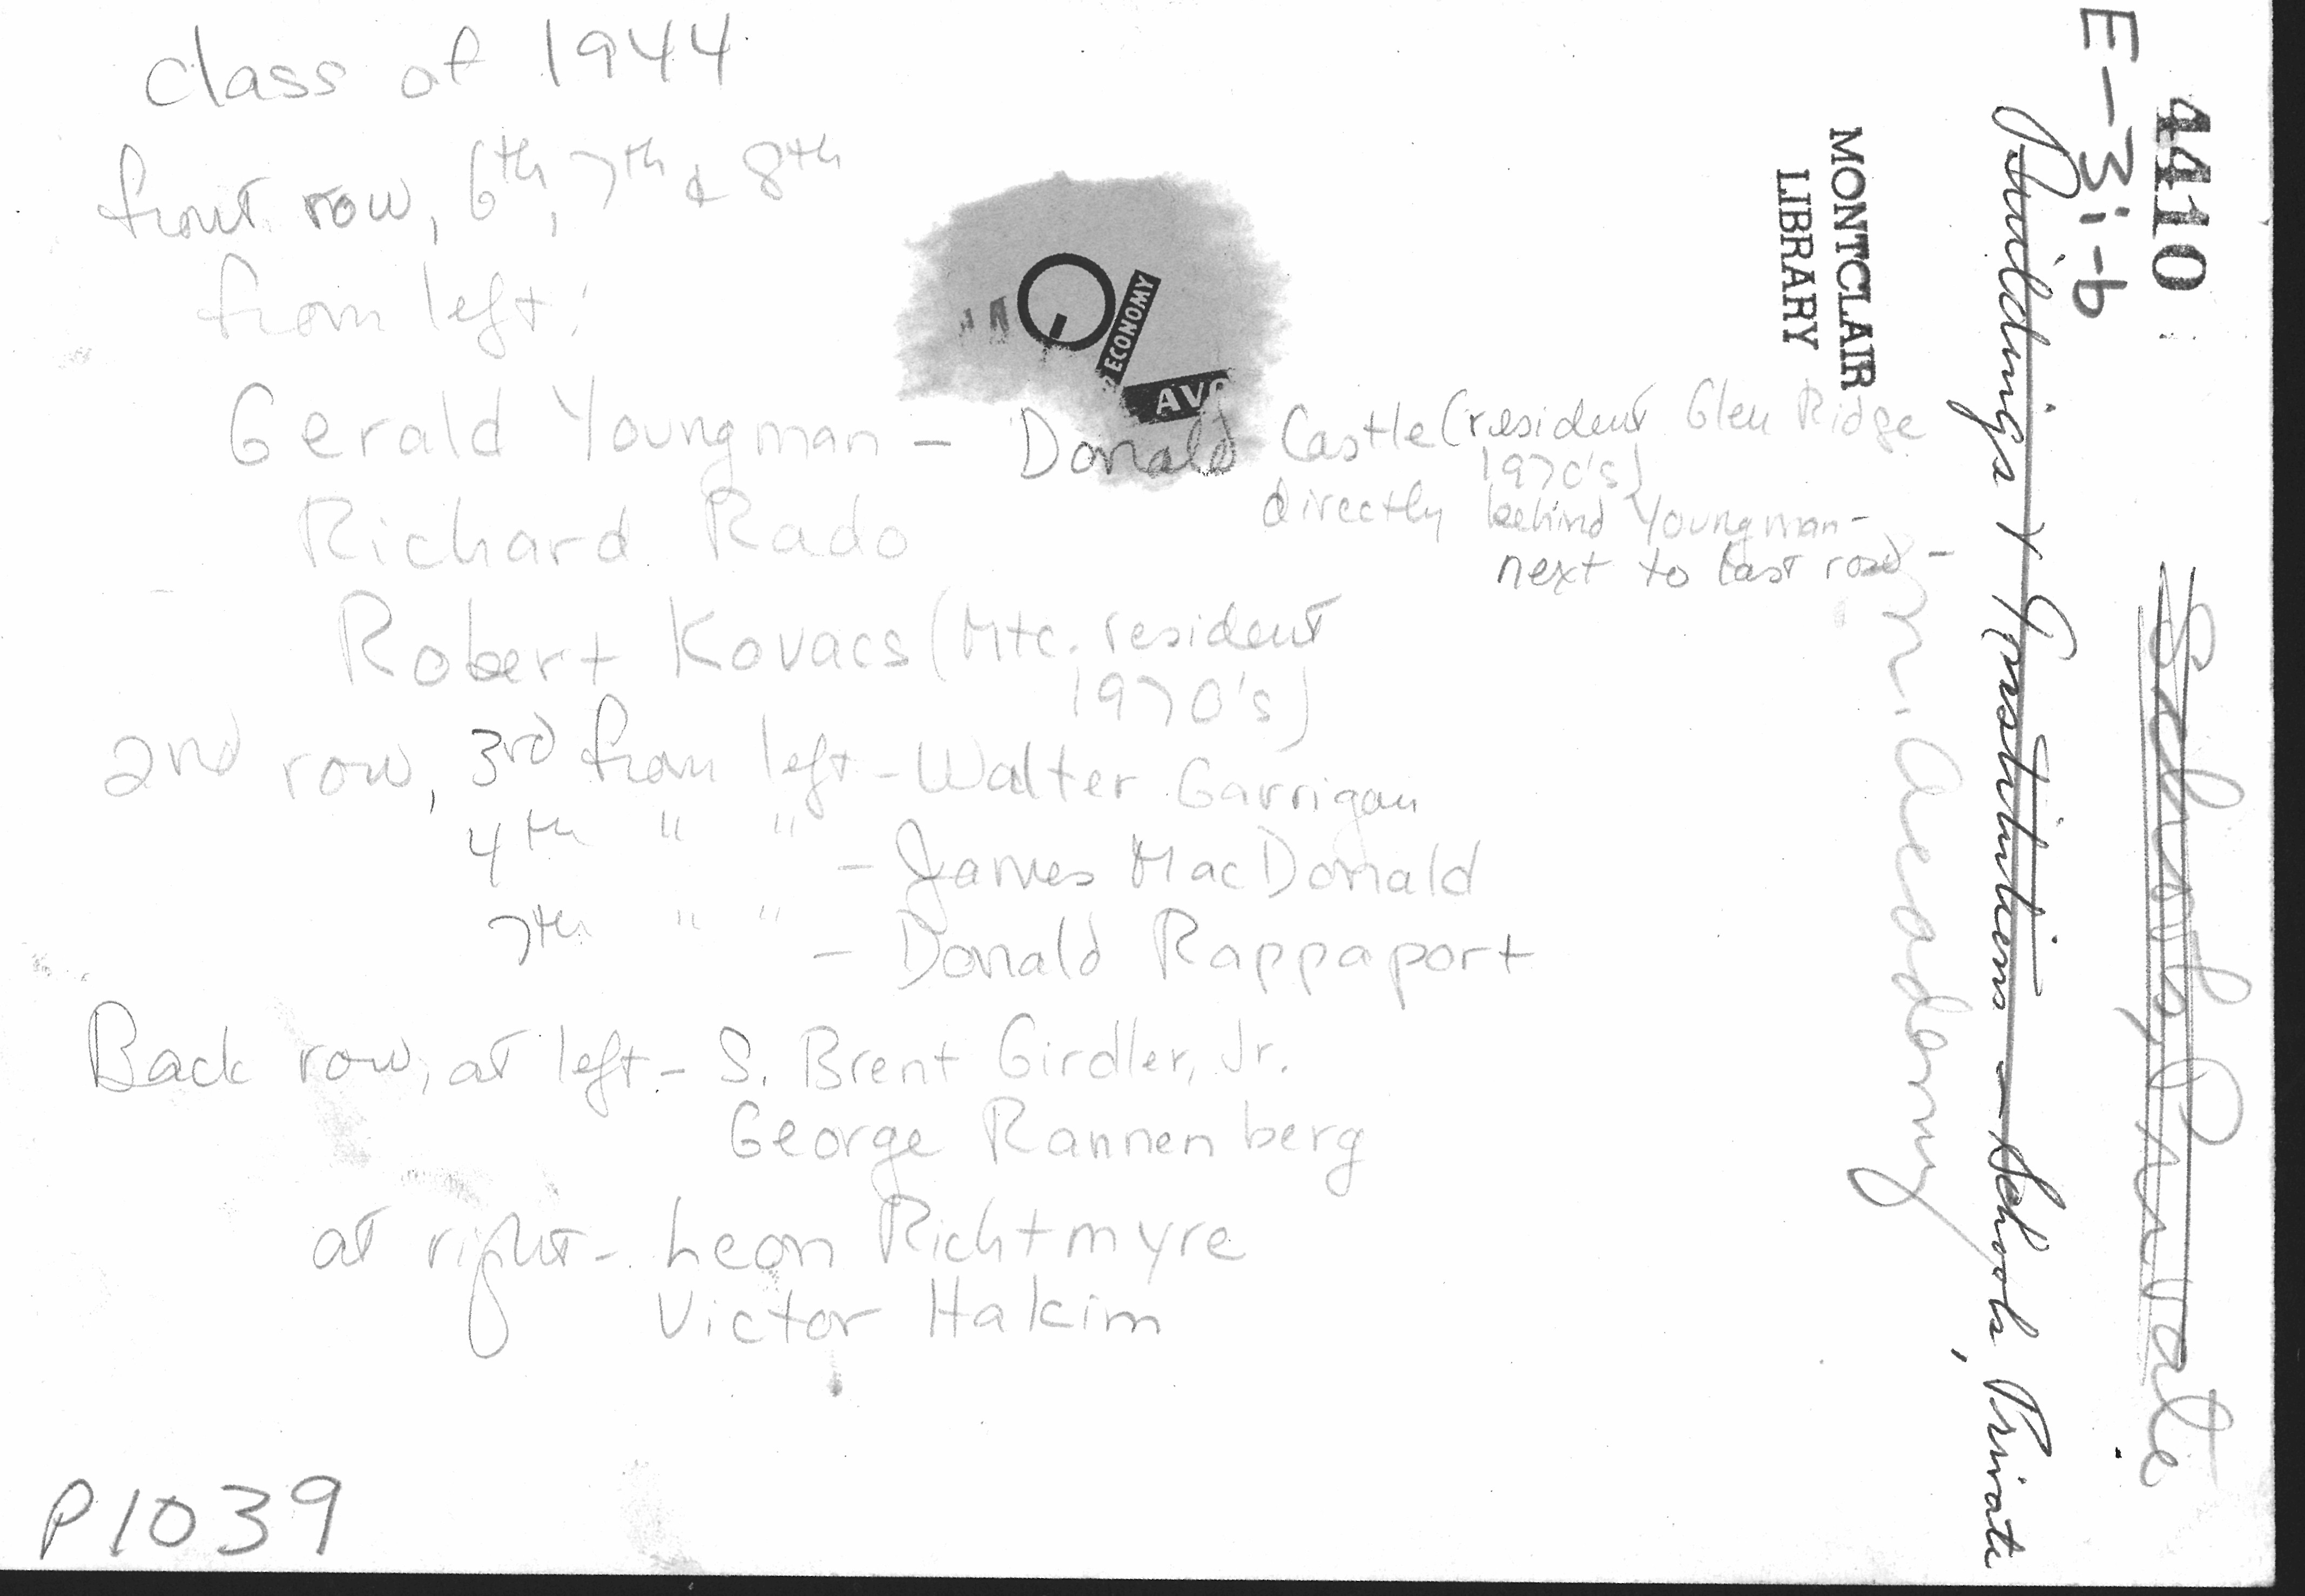 class of 1944
front row, 6th, 7th & 8th
from left:
Gerald Youngman - Donald Castle (resident Glen Ridge
1970's)
directly behind Youngman -
next to last row -
Richard Rado
Robert Kovacs (Mtc. resident
1970's)
2nd row, 3rd from left - Walter Garrigan
4th " " - James MacDonald
7th " " - Donald Rappaport
Back row, at left - S. Brent Girdler, Jr.
George Rannenberg
at right - Leon Richtmyre
Victor Hakim
P1039
ECONOMY
AVO
MONTCLAIR
LIBRARY
4410
E-3i-b
Buildings & Institutions - Schools, Private
Schools, Private
Mtc. Academy